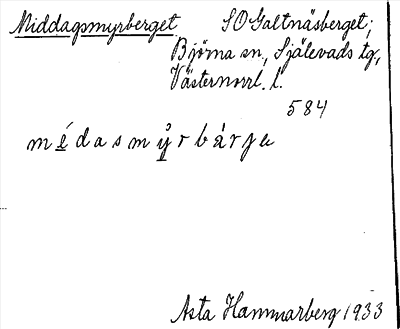 Middagsmyrberget SO Galtnäsberget;
Björna sn., Själevads tg.,
Västernorrl. l.
584
médasmy̌rbàrja
Asta Hammarberg 1933